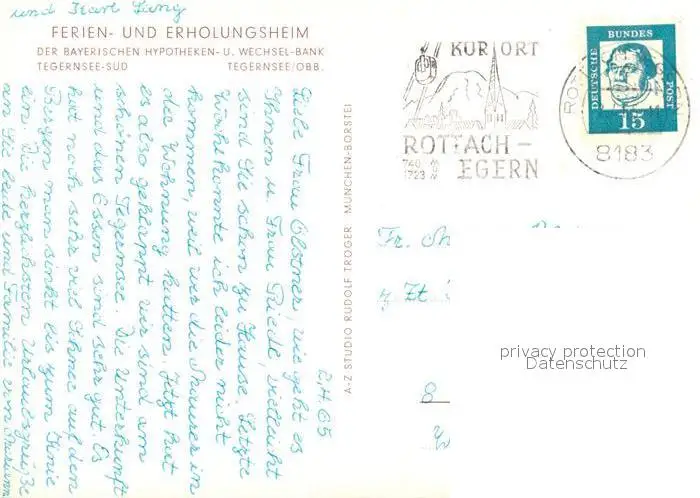 und Karl Lang
FERIEN- UND ERHOLUNGSHEIM
DER BAYERISCHEN HYPOTHEKEN- U. WECHSEL-BANK
TEGERNSEE-SÜD TEGERNSEE/OBB.
2.4.65
Liebe Frau Elstner, wie geht es
Ihnen u. Frau Riede, vielleicht
sind Sie schon zu Hause. Letzte
Woche konnte ich leider nicht
kommen, weil wir die Maurer in
der Wohnung hatten. Jetzt hat
es also geklappt wir sind am
schönen Tegernsee. Die Unterkunft
und das Essen sind sehr gut. Es
hat noch sehr viel Schnee auf den
Bergen man sinkt bis zum Knie
ein. Die herzlichsten Urlaubsgrüße
an Sie beide und Familie von
A-Z STUDIO RUDOLF TRÖGER MÜNCHEN-BORSTEI
KURORT
ROTTACH-
EGERN
740
1723
m
ü
N
N
DEUTSCHE
BUNDES
POST
15
8183
Fr.
z. Zt
8
privacy protection
Datenschutz